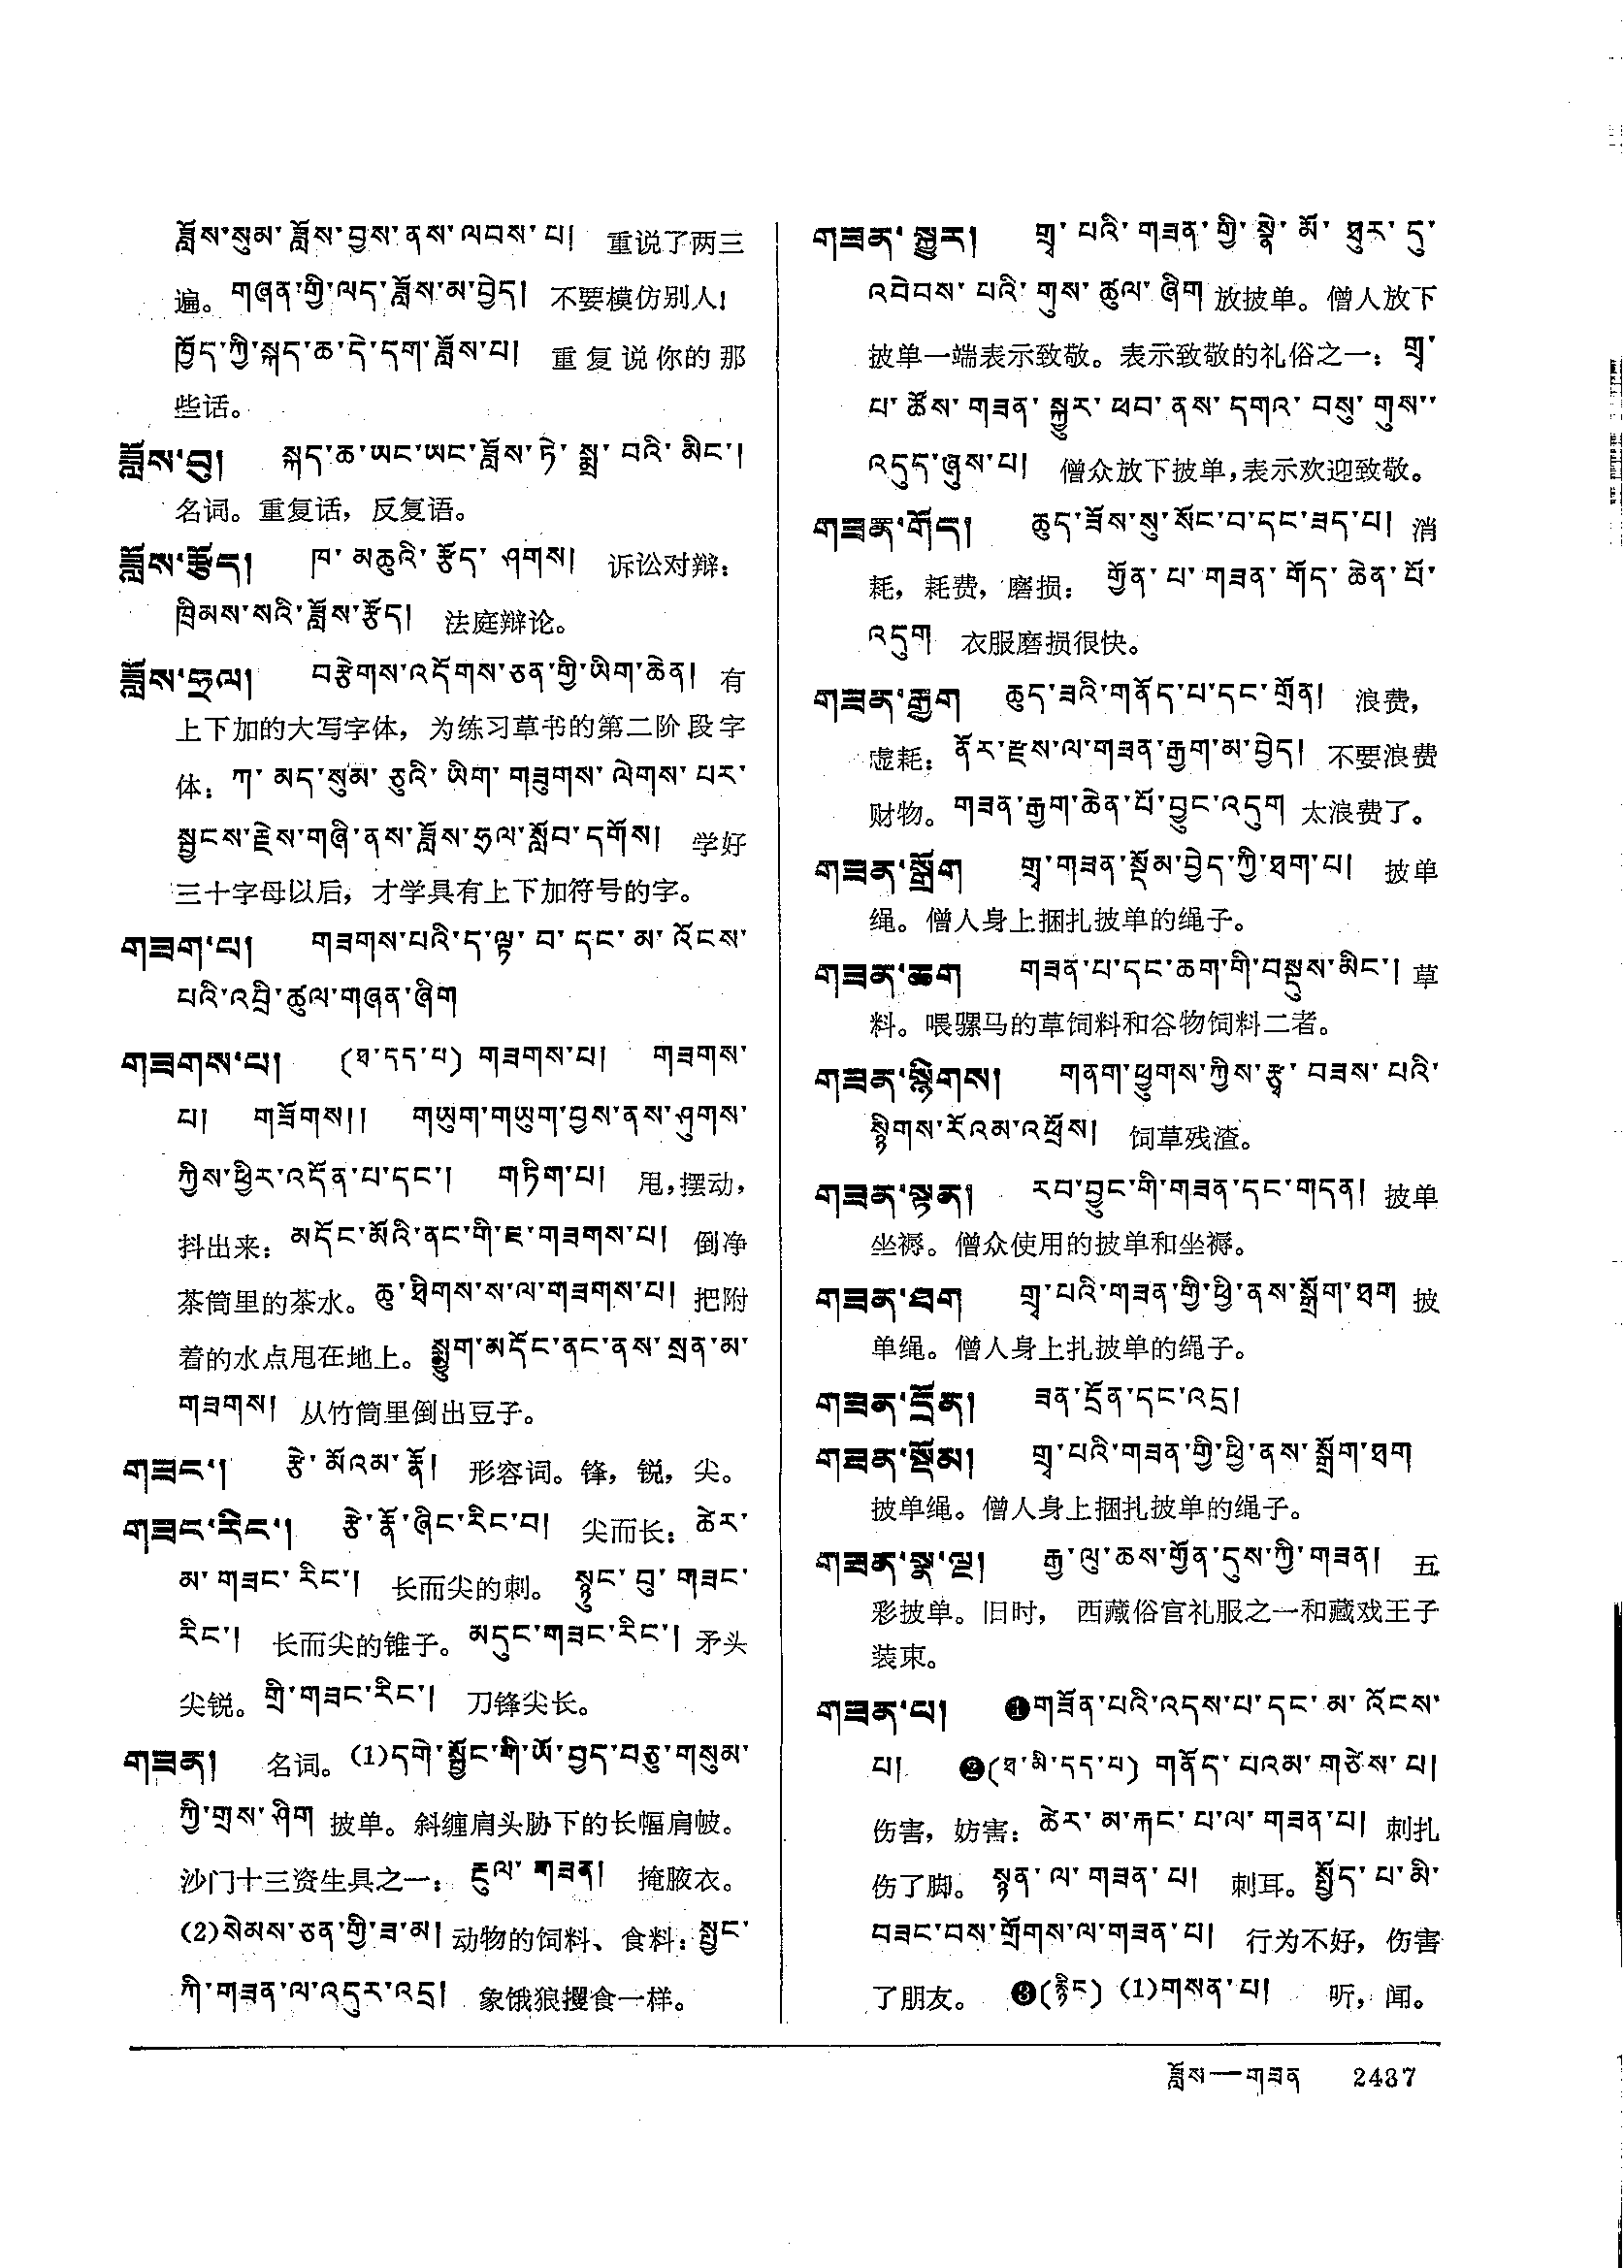 ཟློས་སུམ་ཟློས་བྱས་ནས་ལབས་པ། 重说了两三
遍。གཞན་གྱི་ལད་ཟློས་མ་བྱེད། 不要模仿别人!
ཁྱོད་ཀྱི་སྐད་ཆ་དེ་དག་ཟློས་པ། 重复说你的那
些话。
ཟློས་བུ། སྐད་ཆ་ཡང་ཡང་ཟློས་ཏེ་སྨྲ་བའི་མིང་།
名词。重复话，反复语。
ཟློས་རྩོད། ཁ་མཆུའི་རྩོད་ཤགས། 诉讼对辩：
ཁྲིམས་སའི་ཟློས་རྩོད། 法庭辩论。
ཟློས་ཧྲལ། བརྩེགས་འདོགས་ཅན་གྱི་ཡིག་ཆེན། 有
上下加的大写字体，为练习草书的第二阶段字
体：ཀ་མད་སུམ་ཅུའི་ཡིག་གཟུགས་ལེགས་པར་
སྦྱངས་རྗེས་གཞི་ནས་ཟློས་ཧྲལ་སློབ་དགོས། 学好
三十字母以后，才学具有上下加符号的字。
གཟག་པ། གཟགས་པའི་ད་ལྟ་བ་དང་མ་འོངས་
པའི་འབྲི་ཚུལ་གཞན་ཞིག
གཟགས་པ། (ཐ་དད་པ) གཟགས་པ། གཟགས་
པ། གཟོགས།། གཡུག་གཡུག་བྱས་ནས་ཤུགས་
ཀྱིས་ཕྱིར་འདོན་པ་དང་། གཏིག་པ། 甩，摆动，
抖出来：མདོང་མོའི་ནང་གི་ཇ་གཟགས་པ། 倒净
茶筒里的茶水。ཆུ་ཐིགས་ས་ལ་གཟགས་པ། 把附
着的水点甩在地上。སྨྱུག་མདོང་ནང་ནས་སྲན་མ་
གཟགས། 从竹筒里倒出豆子。
གཟང་། རྩེ་མོའམ་རྣོ། 形容词。锋，锐，尖。
གཟང་རིང་། རྩེ་རྣོ་ཞིང་རིང་བ། 尖而长：ཚེར་
མ་གཟང་རིང་། 长而尖的刺。སྙུང་བུ་གཟང་
རིང་། 长而尖的锥子。མདུང་གཟང་རིང་། 矛头
尖锐。གྲི་གཟང་རིང་། 刀锋尖长。
གཟན། 名词。(1)དགེ་སྦྱོང་གི་ཡོ་བྱད་བཅུ་གསུམ་
ཀྱི་གྲས་ཤིག 披单。斜缠肩头胁下的长幅肩帔。
沙门十三资生具之一：རྔུལ་གཟན། 掩腋衣。
(2)སེམས་ཅན་གྱི་ཟ་མ། 动物的饲料、食料：སྤྱང་
ཀི་གཟན་ལ་འདུར་འདྲ། 象饿狼攫食一样。
གཟན་སྐྱུར། གྲྭ་པའི་གཟན་གྱི་སྣེ་མོ་ཐུར་དུ་
འབེབས་པའི་གུས་ཚུལ་ཞིག 放披单。僧人放下
披单一端表示致敬。表示致敬的礼俗之一：གྲྭ་
པ་ཚོས་གཟན་སྐྱུར་ཕབ་ནས་དགའ་བསུ་གུས་
འདུད་ཞུས་པ། 僧众放下披单，表示欢迎致敬。
གཟན་གོད། ཆུད་ཟོས་སུ་སོང་བ་དང་ཟད་པ། 消
耗，耗费，磨损：གྱོན་པ་གཟན་གོད་ཆེན་པོ་
འདུག 衣服磨损很快。
གཟན་རྒྱག ཆུད་ཟའི་གནོད་པ་དང་གྲོན། 浪费，
虚耗：ནོར་རྫས་ལ་གཟན་རྒྱག་མ་བྱེད། 不要浪费
财物。གཟན་རྒྱག་ཆེན་པོ་བྱུང་འདུག 太浪费了。
གཟན་སྒྲོག གྲྭ་གཟན་སྡོམ་བྱེད་ཀྱི་ཐག་པ། 披单
绳。僧人身上捆扎披单的绳子。
གཟན་ཆག གཟན་པ་དང་ཆག་གི་བསྡུས་མིང་། 草
料。喂骡马的草饲料和谷物饲料二者。
གཟན་སྙིགས། གནག་ཕྱུགས་ཀྱིས་རྩྭ་བཟས་པའི་
སྙིགས་རོའམ་འཕྲོས། 饲草残渣。
གཟན་སྟན། རབ་བྱུང་གི་གཟན་དང་གདན། 披单
坐褥。僧众使用的披单和坐褥。
གཟན་ཐག གྲྭ་པའི་གཟན་གྱི་ཕྱི་ནས་སྒྲོག་ཐག 披
单绳。僧人身上扎披单的绳子。
གཟན་དྲོན། ཟན་དྲོན་དང་འདྲ།
གཟན་སྡོམ། གྲྭ་པའི་གཟན་གྱི་ཕྱི་ནས་སྒྲོག་ཐག
披单绳。僧人身上捆扎披单的绳子。
གཟན་སྣ་ལྔ། རྒྱ་ལུ་ཆས་གྱོན་དུས་ཀྱི་གཟན། 五
彩披单。旧时，西藏俗官礼服之一和藏戏王子
装束。
གཟན་པ། ❶གཟོན་པའི་འདས་པ་དང་མ་འོངས་
པ། ❷(ཐ་མི་དད་པ) གནོད་པའམ་གཙེས་པ།
伤害，妨害：ཚེར་མ་རྐང་པ་ལ་གཟན་པ། 刺扎
伤了脚。སྙན་ལ་གཟན་པ། 刺耳。སྤྱོད་པ་མི་
བཟང་བས་གྲོགས་ལ་གཟན་པ། 行为不好，伤害
了朋友。❸(རྙིང) (1)གསན་པ། 听，闻。
ཟློས—གཟན 2437